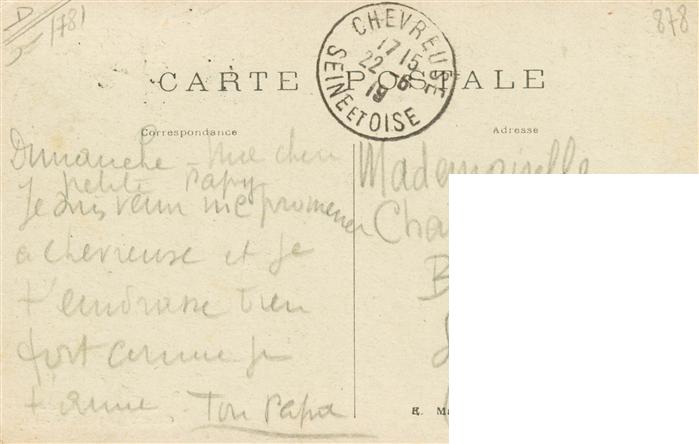 D 1781
878
CHEVREUSE
17 15
22 - 6
19
SEINE ET OISE
CARTE POSTALE
Correspondance
Adresse
Dimanche - Ma chère
petite
Je suis venu me promener
a chevreuse et je
t'embrasse bien
fort comme je
t'aime. Ton Papa
Mademoiselle
Cha
B
E. M